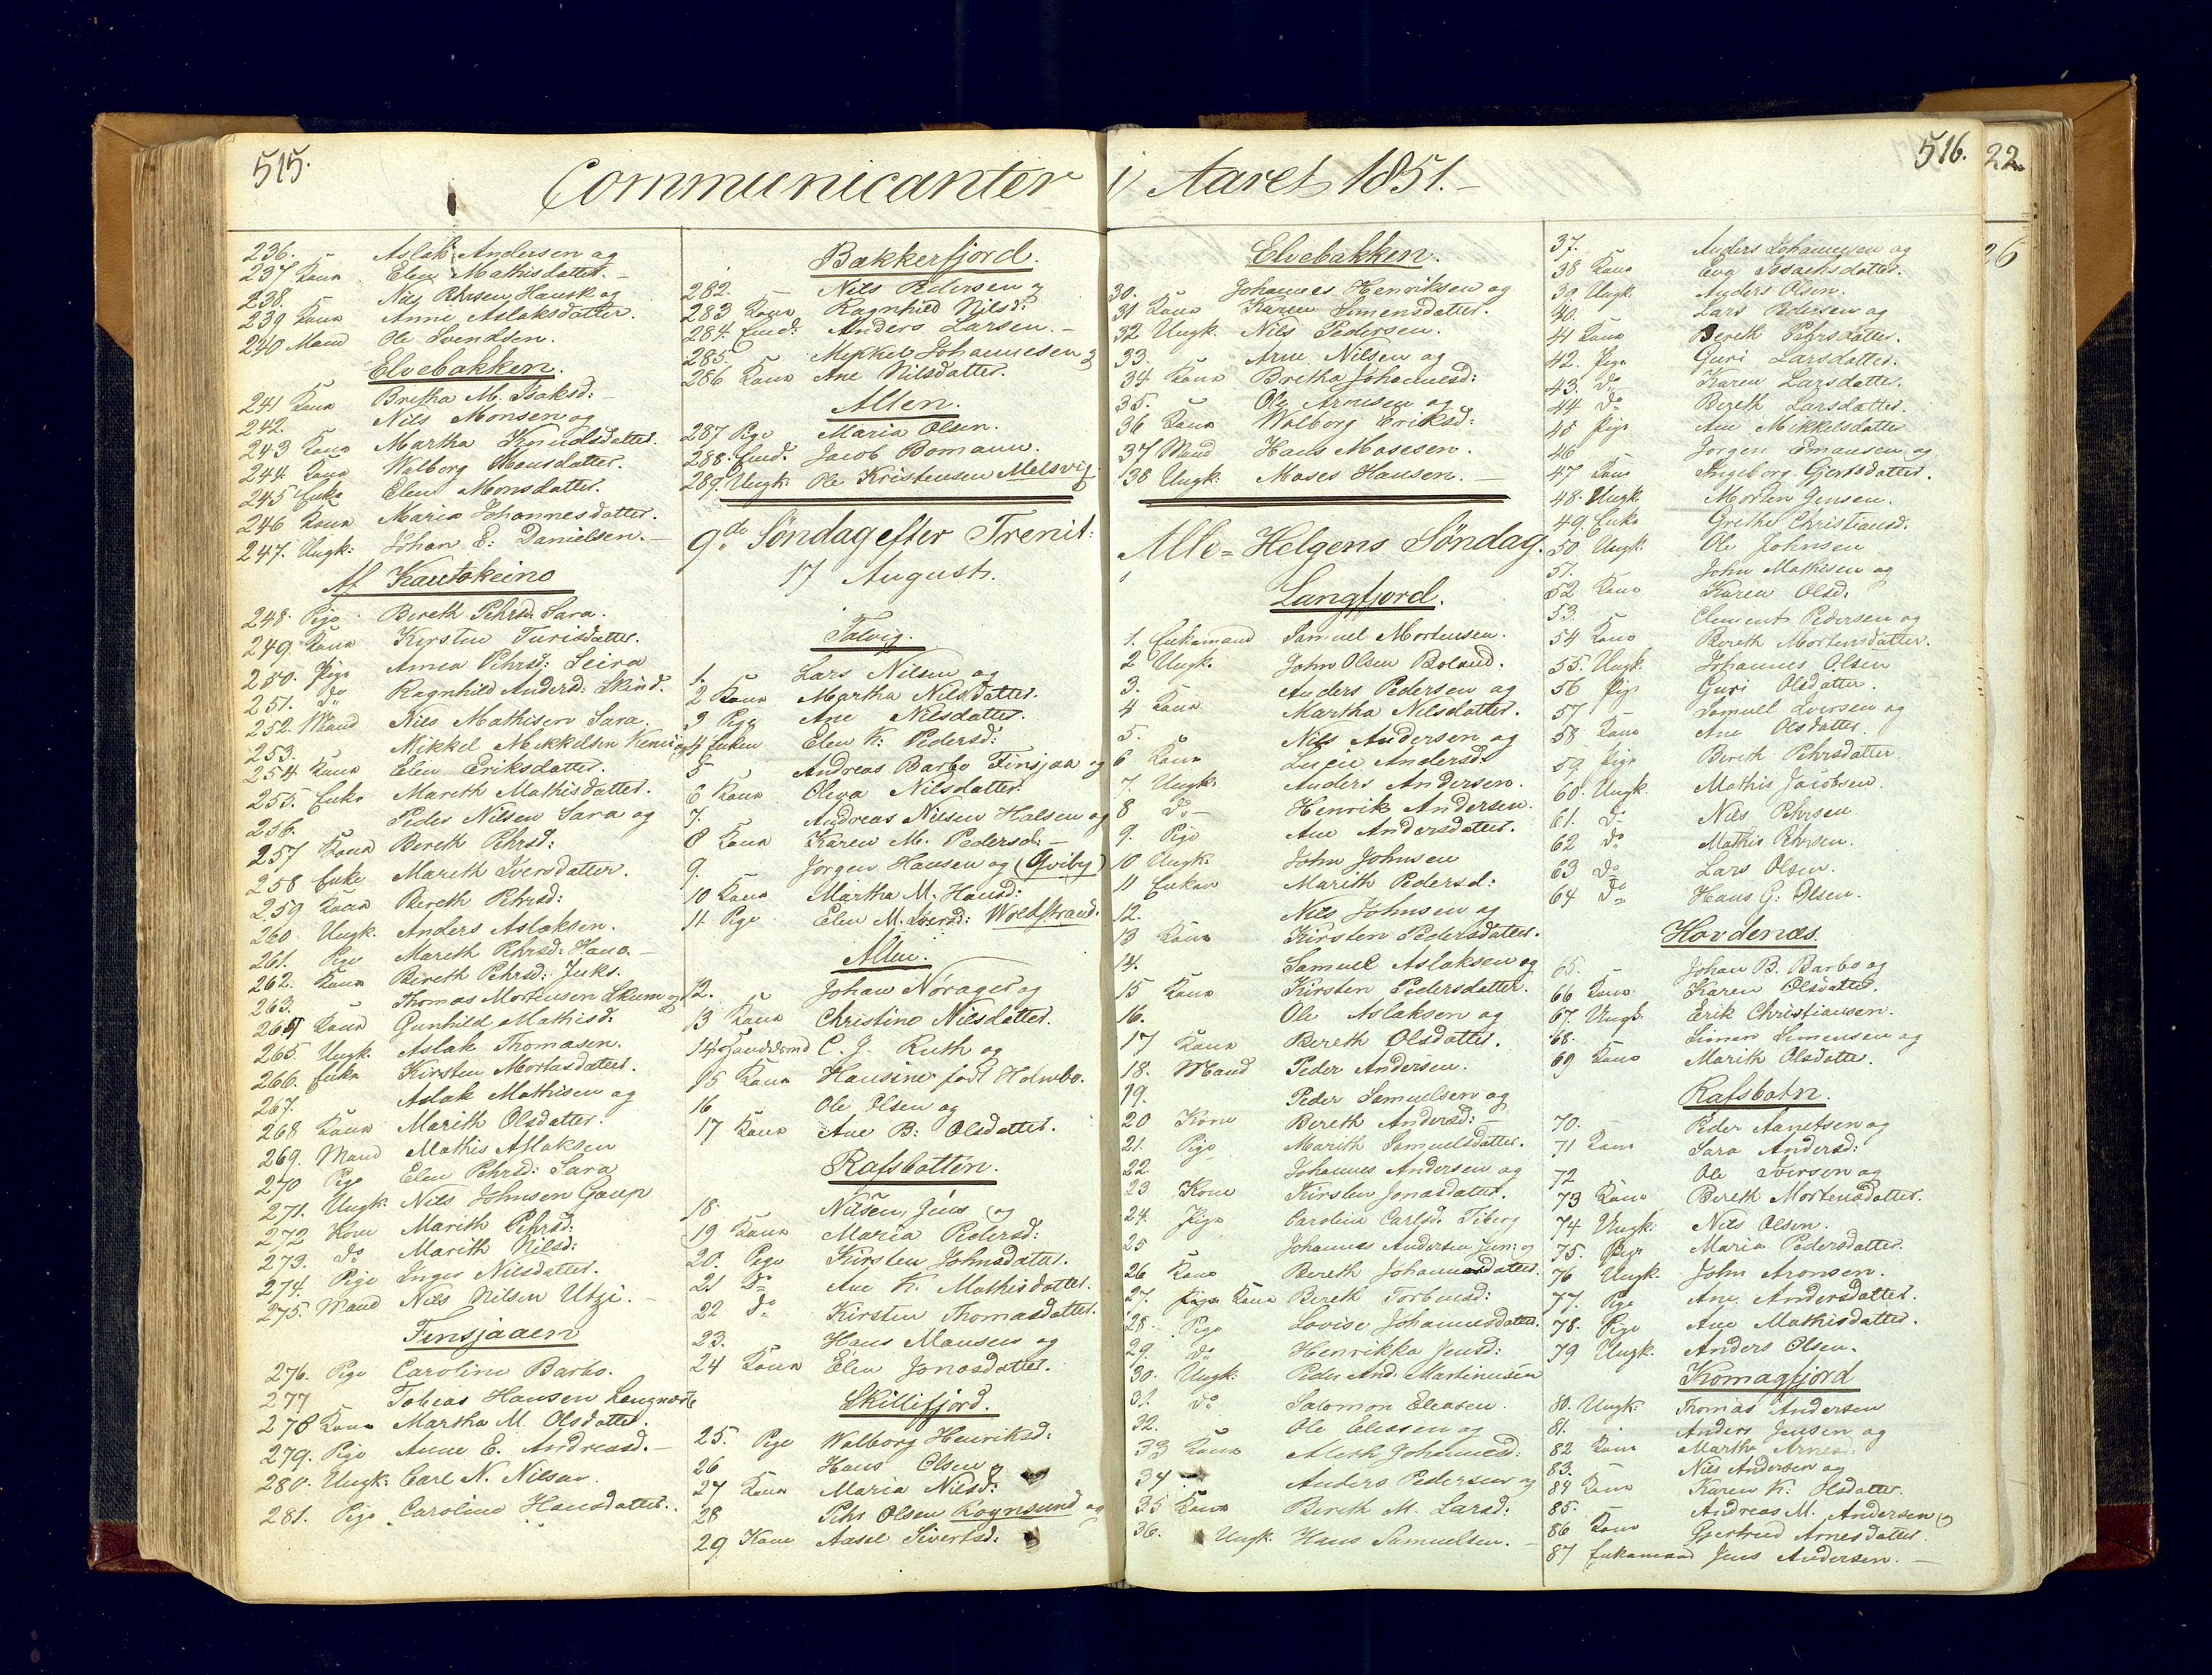 515.
Communicanter
236. Aslak Andersen og
237 Kona Elen Mathisdatter.
238. Nils Pehrsen Hansk og
239 Kona Anne Aslaksdatter.
240 Mand Ole Svendsen.
Elvebakken.
241 Kona Bretha M. Isaksd:
242. Nils Monsen og
243 Kona Martha Knudsdatter.
244 Kona Walborg Hansdatter.
245 Enke Elen Monsdatter.
246 Kona Maria Johannesdatter.
247. Ungk: Johan E: Danielsen.
Af Kautokeino
248. Pige Bereth Pehrsd: Sara.
249. Kona Kirsten Turisdatter.
250. Pige Anna Pehrsd: Seira
251. do Ragnhild Andersd: Skind.
252. Mand Nils Mathisen Sara.
253. Mikkel Mikkelsen Kemi og
254 Kona Elen Eriksdatter.
255. Enke Mareth Mathisdatter.
256. Peder Nilsen Sara og
257 Kona Bereth Pehrsd:
258 Enke Mareth Iversdatter.
259 Kona Bereth Pehrsd:
260. Ungk. Anders Aslaksen.
261. Pige Mareth Pehrsd: Hana.
262. Kona Bereth Pehrsd: Juks.
263. Thomas Mortensen Skum og
264 Kona Gunhild Mathisd.
265. Ungk. Aslak Thomasen.
266. Enke Kirsten Mortasdatter.
267. Aslak Mathisen og
268 Kona Marith Olsdatter.
269. Mand Mathis Aslaksen
270 Pige Elen Pehrsd: Sara
271. Ungk. Nils Johnsen Gaup
272 Kone Marith Pehrsd:
273. do Marith Nilsd:
274. Pige Inger Nilsdatter.
275. Mand Nils Nilsen Utzi.
Finsjaaen
276. Pige Caroline Barbo.
277 Tobias Hansen Langnæs
278 Kona Martha M. Olsdatter.
279. Pige Anne E. Andreasd.
280. Ungk: Carl N. Nilsen.
281. Pige Caroline Hansdatter.
Bakkerfjord.
282. Nils Pedersen og
283 Kona Ragnhild Nilsd:
284. Enked: Anders Larsen.
285. Mikkel Johannesen og
286 Kona Ane Nilsdatter.
Alten.
287 Pige Maria Olsen.
288. Enked. Jacob Bomann.
289. Ungk: Ole Kristensen Melsvig.
9de Søndag efter Trenit:
17 August.
Talvig.
1. Lars Nilsen og
2 Kona Martha Nilsdatter.
3 Pige Ane Nilsdatter.
4 Enken Elen K: Pedersd:
5 Andreas Barbo Finsjaa og
6 Kona Oleva Nilsdatter
7. Andreas Nilsen Halsen og
8 Kona Karen M. Pedersd:
9. Jørgen Hansen og (Qviby)
10 Kona Martha M. Hansd:
11 Pige Elen M. Iversd: Woldstrand.
Alten.
12. Johan Norager og
13 Kona Christine Nilsdatter.
14 C. J. Ruth og
15 Kona Hansine født Holmbo.
16 Ole Olsen og
17 Kona Ane B: Olsdatter.
Rafsbotten.
18. Nilsen, Jens og
19 Kona Maria Pedersd:
20. Pige Kirsten Johnsdatter.
21 Do Ane K. Mathisdatter.
22 do Kirsten Thomasdatter.
23. Hans Monsen og
24 Kona Elen Jonasdatter.
Skillefjord.
25. Pige Walborg Henriksd:
26 Hans Olsen og
27 Kona Maria Nilsd:
28 Pehr Olsen Rognsund og
29 Kone Aasel Sivertsd:
516.
22.
26
i Aaret 1851.
Elvebakken.
30. Johannes Henriksen og
31 Kona Karen Simensdatter.
32 Ungk. Nils Pedersen.
33. Arne Nilsen og
34 Kona Bretha Johannesd:
35. Ole Arnesen og
36 Kona Walborg Eriksd:
37 Mand Hans Mosesen.
38 Ungk: Moses Hansen.
Alle-Helgens Søndag.
Langfjord.
1. Enkemand Samuel Mortensen.
2 Ungk. John Olsen Bolsud.
3. Anders Pedersen og
4 Kona Martha Nilsdatter.
5. Nils Andersen og
6 Kona Lucie Andersd:
7. Ungk: Anders Andersen.
8 Do Henrik Andersen.
9. Pige Ane Andersdatter.
10 Ungk: John Johnsen
11 Enken Marith Pedersd:
12. Nils Johnsen og
13 Kona Kirsten Pedersdatter.
14. Samuel Aslaksen og
15 Kona Kirsten Pedersdatter.
16. Ole Aslaksen og
17 Kona Bereth Olsdatter.
18. Mand Peder Andersen.
19. Peder Samuelsen og
20 Kone Bereth Andersd:
21. Pige Marith Samuelsdatter.
22. Johannes Andersen og
23 Kone Kirsten Jonasdatter.
24. Pige Caroline Carlsd. Tiberg
25 Johannes Andersen Jun: og
26 Kona Bereth Johannesdatter.
27. Kona Bereth Torbensd:
28. Pige Lovise Johannesdatter.
29. do Henrikka Jensd:
30. Ungk: Peder And. Martinusen
31. do Salomon Eleasen.
32. Ole Eleasen og
33 Kona Aleth Johannesd:
34 Anders Pedersen og
35 Kona Bereth M. Larsd:
36. Ungk. Hans Samuelsen.
37. Anders Johannesen og
38 Kona Eva Isachsdatter.
39 Ungk. Anders Olsen.
40. Lars Pedersen og
41 Kona Bereth Pehrsdatter.
42. Pige Guri Larsdatter.
43. Do Karen Larsdatter.
44 Do Bereth Larsdatter.
45 Pige Ane Mikkelsdatter
46 Jørgen Emansen og
47 Kona Ingeborg Gjertsdatter.
48. Ungk. Morten Jensen.
49. Enke Grethe Christiansd.
50 Ungk. Ole Johnsen
51. John Mathisen og
52 Kona Karen Olsd:
53 Clement Pedersen og
54 Kona Bereth Mortensdatter.
55. Ungk. Johannes Olsen
56 Pige Guri Olsdatter.
57 Samuel Iversen og
58 Kona Ane Olsdatter.
59 Pige Bereth Pehrsdatter.
60. Ungk. Mathis Jacobsen.
61. do Nils Pehrsen
62 do Mathis Pehrsen.
63 Do Lars Olsen.
64 Do Hans G: Olsen.
Hovdenæs.
65. Johan B. Barbo og
66 Kona Karen Olsdatter.
67. Ungk. Erik Christiansen.
68. Simen Simensen og
69 Kona Marith Olsdatter.
Rafsbotn.
70. Peder Aanetsen og
71 Kona Sara Andersd:
72 Ole Iversen og
73 Kona Bereth Mortensdatter.
74 Ungk: Nils Olsen.
75. Pige Maria Pedersdatter.
76 Ungk. John Aronsen.
77. Pige Ane Andersdatter.
78. Pige Ane Mathisdatter.
79 Ungk. Anders Olsen.
Komagfjord
80. Ungk: Thomas Andersen
81. Anders Jensen og
82 Kona Martha Arnesd.
83. Nils Andersen og
84 Kona Karen K. Olsdatter.
85. Andreas M. Andersen og
86 Kona Gjertrud Arnesdatter.
87 Enkemand Jens Andersen.